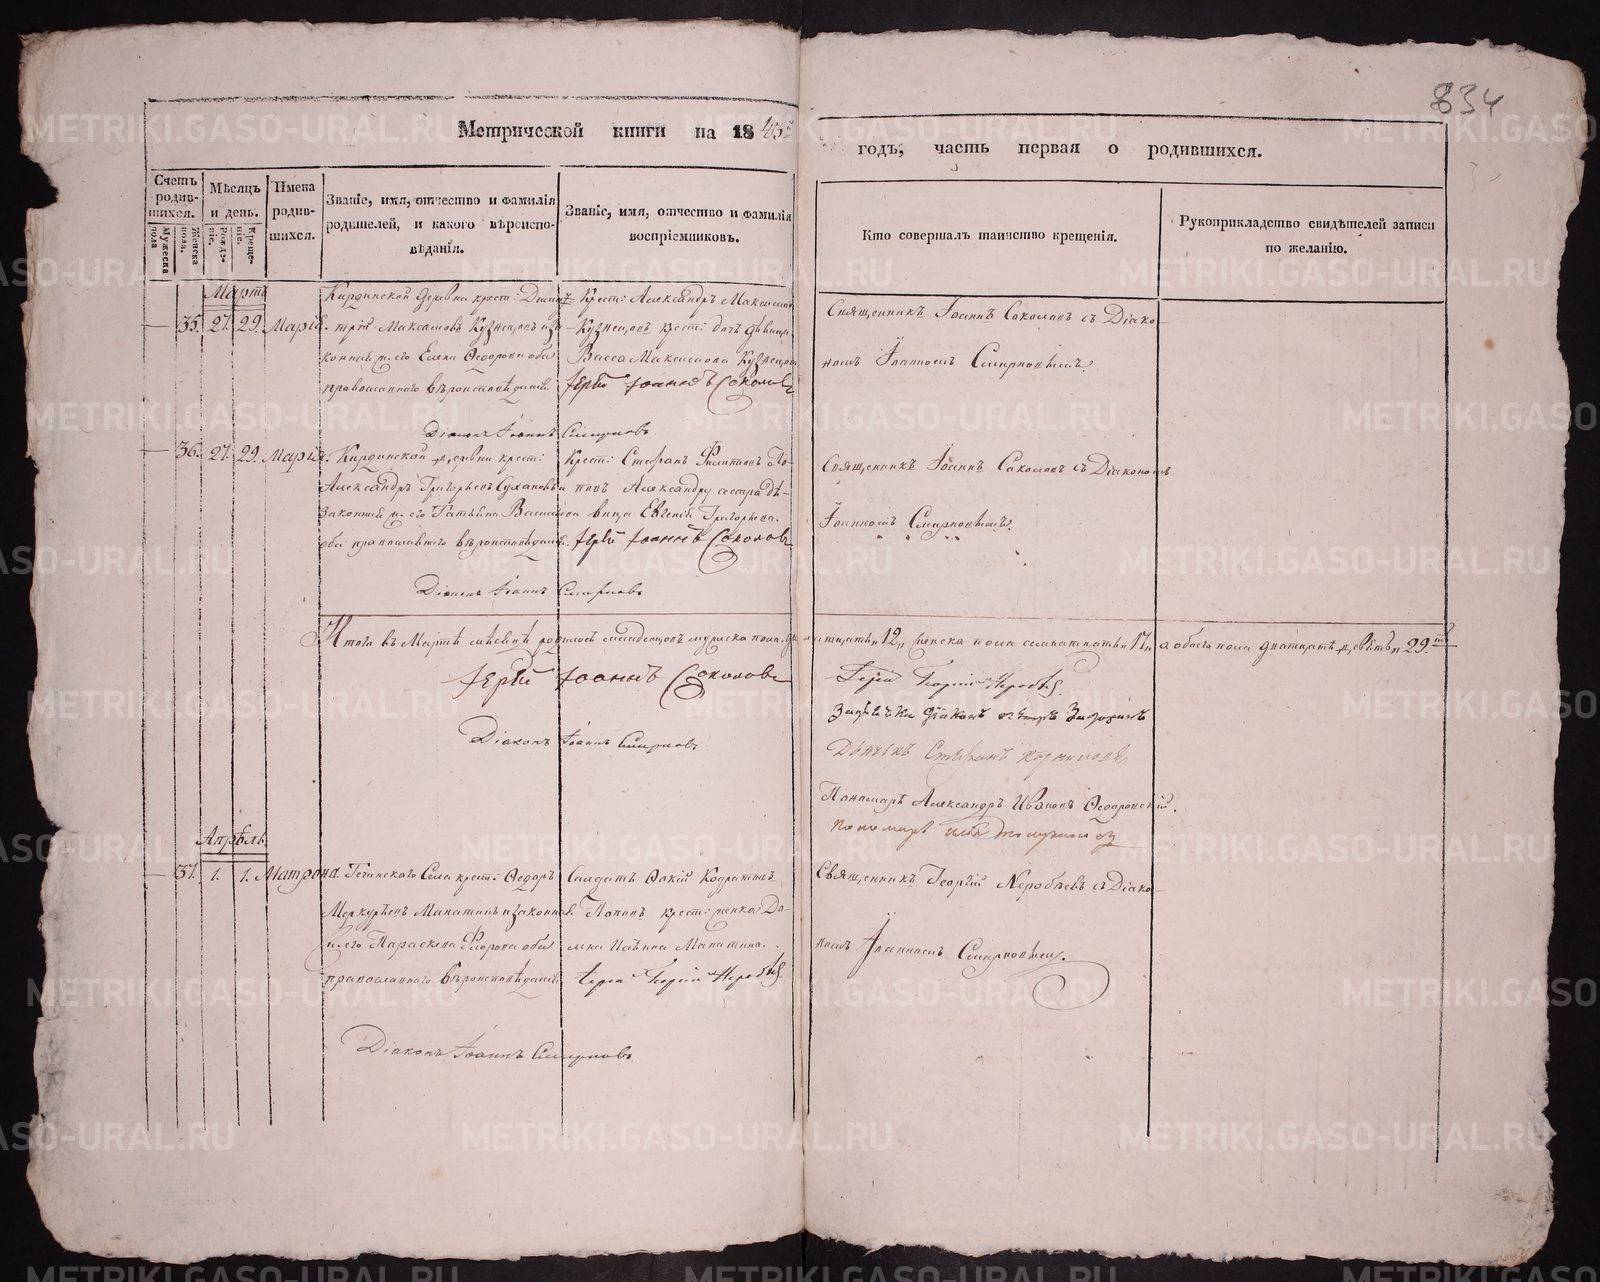 834
Метрической книги на 1845й годъ, часть первая о родившихся.
Счетъ родив-шихся.
Мужеска пола
Женска пола.
Мѣсяцъ и день.
Рожде-ніе.
Креще-ніе.
Имена родив-шихся.
Званіе, имя, отчество и фамилія
родителей, и какого вѣроиспо-
вѣданія.
Званіе, имя, отчество и фамилія
воспріемниковъ.
Кто совершалъ таинство крещенія.
Рукоприкладство свидѣтелей записи
по желанію.
Мартъ
35. 27. 29. Марія.
Кирдинской деревни крест: Дими-
трій Максимовъ Кузнецовъ и за-
конная его Елена Ѳедорова оба
православнаго вѣроисповѣданія.
Крест: Александръ Максимовъ
Кузнецовъ крест: дочь дѣвица
Васса Максимова Кузнецова
Іерей Іоаннъ Соколовъ
Діаконъ Іоаннъ Смирновъ
Священникъ Іоаннъ Соколовъ съ Діако-
номъ Іоанномъ Смирновымъ.
36. 27. 29. Марія.
Кирдинской деревни крест:
Александръ Григорьевъ и
законная его Татьяна
оба православнаго вѣроисповѣданія.
Крест: Стефанъ Филитовъ По-
повъ Александру сестра дѣ-
вица Евгенія Григорьева.
Іерей Іоаннъ Соколовъ
Діаконъ Іоаннъ Смирновъ
Священникъ Іоаннъ Соколовъ съ Діакономъ
Іоанномъ Смирновымъ.
Итого въ Мартѣ мѣсяцѣ родилось младенцовъ мужеска пола двенатцать „12„ женска пола семнатцать „17„ а обоего пола дватцать девять „29.
Іерей Іоаннъ Соколовъ
Діаконъ Іоаннъ Смирновъ
Іерей Георгій
Діаконъ
Дьячекъ Стефанъ
Пономарь Александръ Ивановъ Ѳедоровскій.
Пономарь
Апрѣль.
37. 1. 1. Матрона.
Села крест: Ѳедоръ
Меркурьевъ Манатинъ и законная
его Параскева оба
православнаго вѣроисповѣданія
Солдатъ Фокій
Поповъ крест: женка До-
мна Манатина.
Іерей Георгій
Діаконъ Іоаннъ Смирновъ
Священникъ Георгій съ Діако-
номъ Іоанномъ Смирновымъ.
METRIKI.GASO-URAL.RU